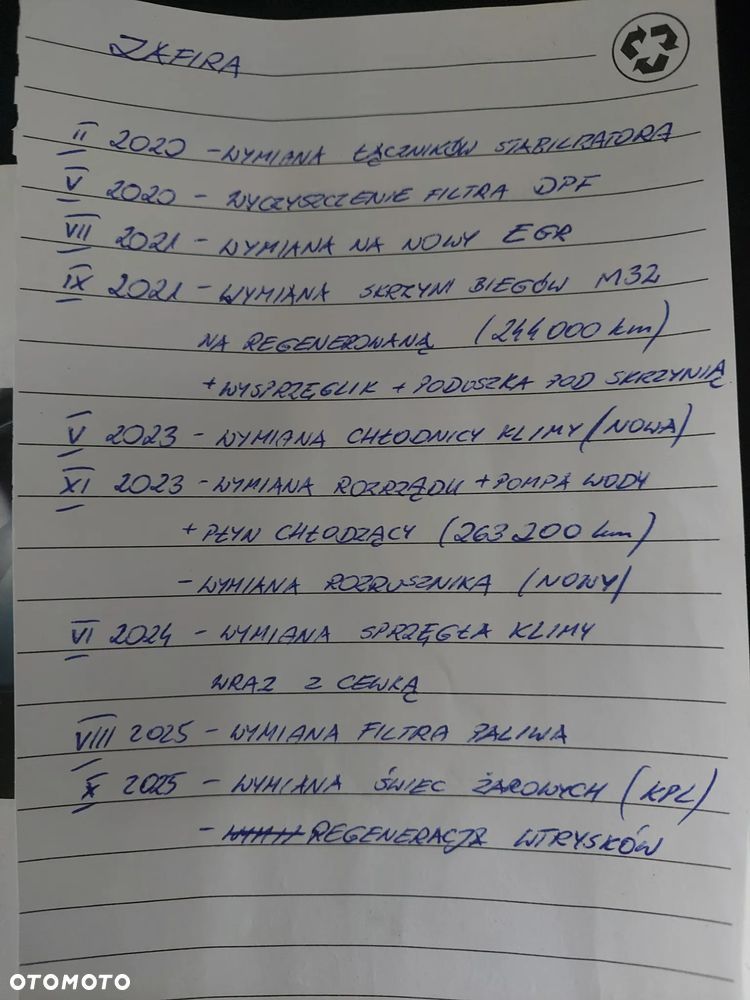 ZAFIRA
II 2020 - WYMIANA ŁĄCZNIKÓW STABILIZATORA
V 2020 - WYCZYSZCZENIE FILTRA DPF
VII 2021 - WYMIANA NA NOWY EGR
IX 2021 - WYMIANA SKRZYNI BIEGÓW M32
NA REGENEROWANĄ (244000 km)
+ WYSPRZĘGLIK + PODUSZKA POD SKRZYNIĄ
V 2023 - WYMIANA CHŁODNICY KLIMY (NOWA)
XI 2023 - WYMIANA ROZRZĄDU + POMPA WODY
+ PŁYN CHŁODZĄCY (263200 km)
- WYMIANA ROZRUSZNIKA (NOWY)
VI 2024 - WYMIANA SPRZĘGŁA KLIMY
WRAZ Z CEWKĄ
VIII 2025 - WYMIANA FILTRA PALIWA
X 2025 - WYMIANA ŚWIEC ŻAROWYCH (KPL)
- REGENERACJA WTRYSKÓW
OTOMOTO